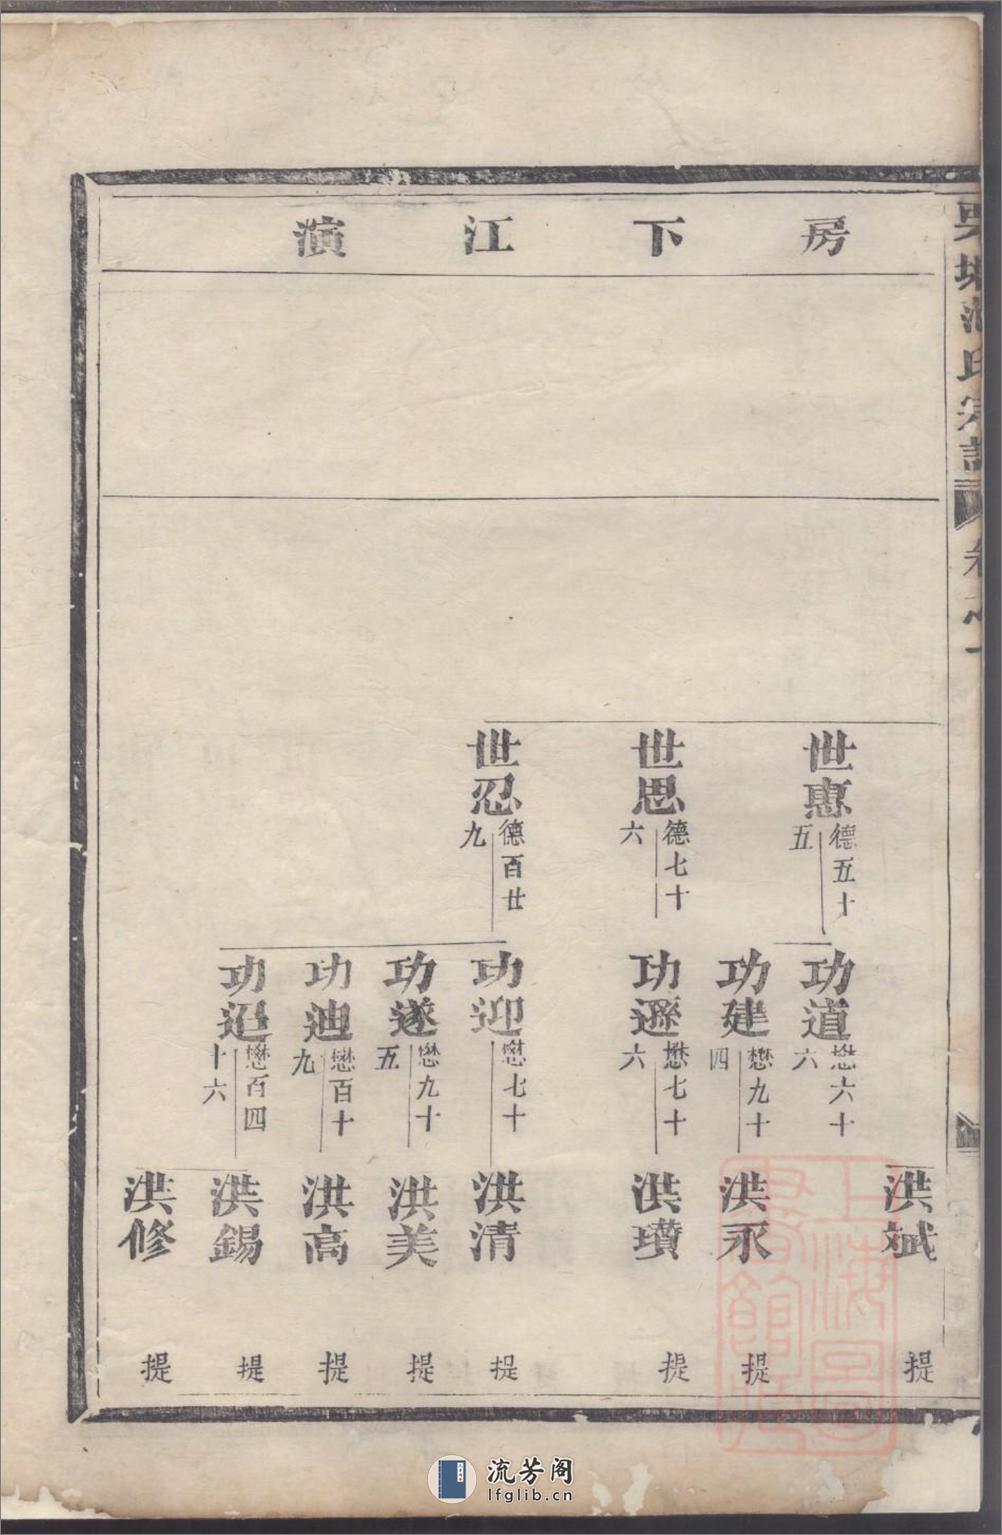 房下江演
世惠
德五十
五
世思
德七十
六
世忍
德百廿
九
功道
懋六十
六
功建
懋九十
四
功遜
懋七十
六
功迎
懋七十
功遂
懋九十
五
功迪
懋百十
九
功
懋百四
十六
洪斌
洪永
洪璜
洪清
洪美
洪高
洪錫
洪修
提
提
提
提
提
提
提
提
上海圖書館藏
流芳阁
lfglib.cn